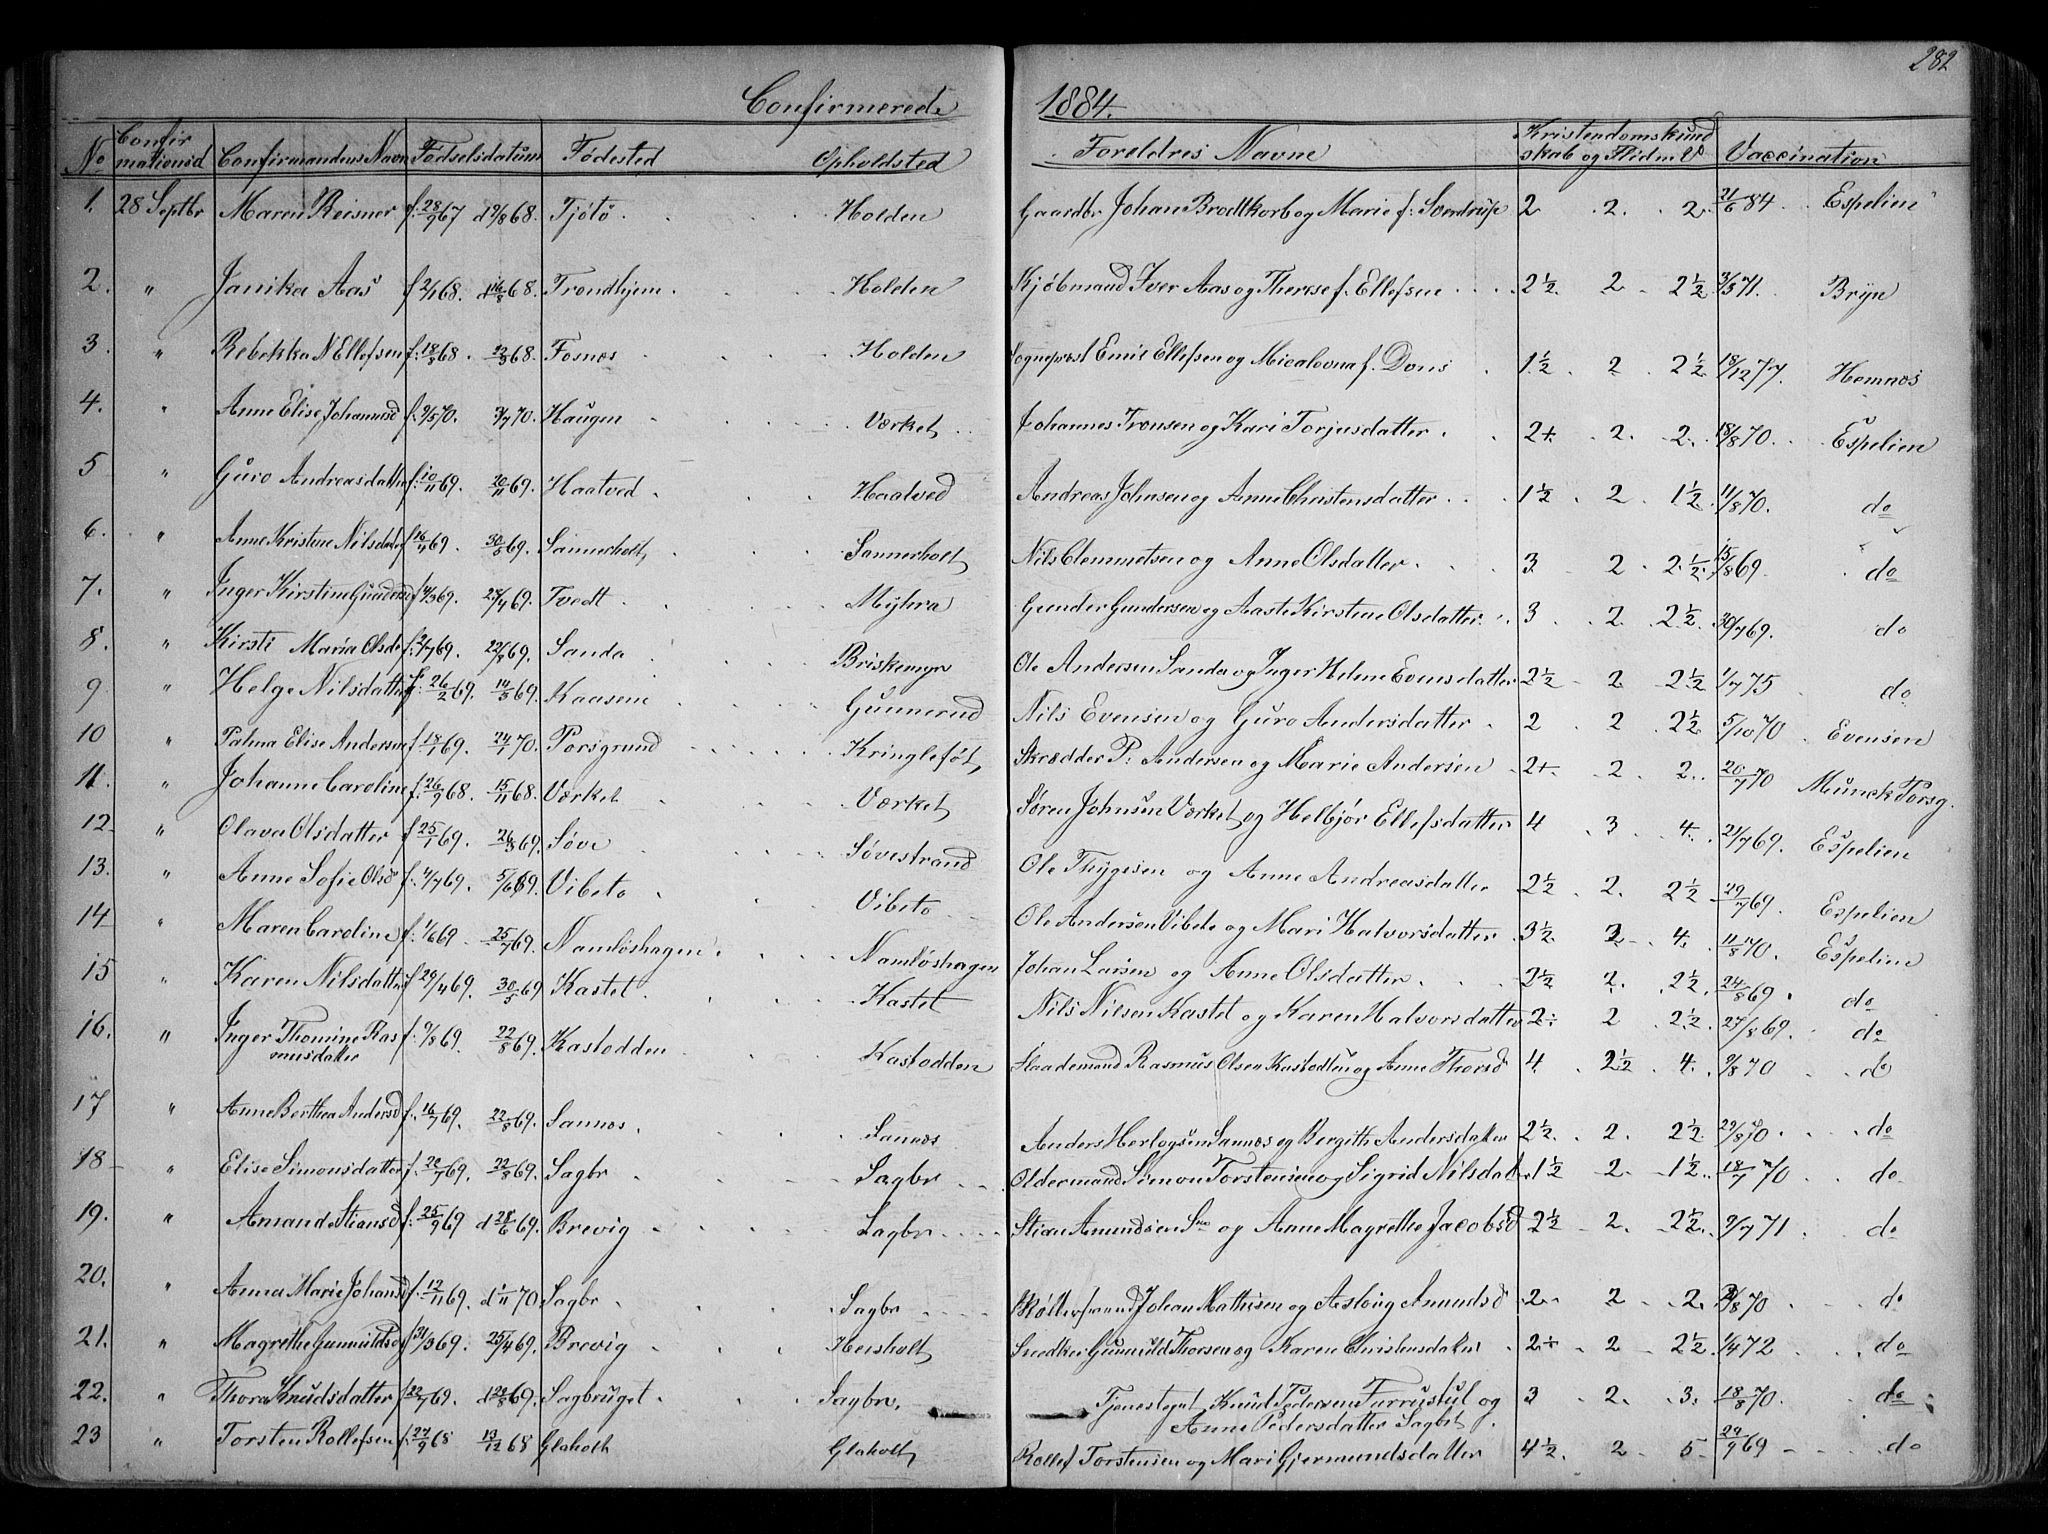 282
Confirmerede 1884.
No Confirmationsd Confirmandens Navn Fødselsdatum Fødested Opholdsted Foreldres Navne Kristendomskundskab og Flid m. V Vaccination
1. 28 Septbr Maren Reisner f. 28/9 67 d 9/8 68. Tjötö Holden Gaardbr Johan Brodtkorb og Marie f. 2 2. 2. 21/6 84 Espelien
2. " Janika Aas f 2/1 68. d 16/8 68. Trondhjem Holden Kjøbmand Iver Aas og Therese f. Ellefsen 2 1/2 2 2 1/2 3/5 71. Bryn
3. " Rebekka N Ellefsen f. 18/8 68. 68. Fosnes Holden Sogneprest Emil Ellefsen og f. Dons 1 1/2 2 2 1/2 18/12 77. Hemnæs
4. " Anne Elise Johannesd f. 2/5 70. 3/7 70. Haugen Værket Johannes Tronsen og Kari Torjusdatter 2+. 2. 2. 18/8 70. Espelien
5 " Guro Andreasdatter f. 10/11 69. 20/11 69. Haatved Haatved Andreas Johnsen og Anne Christensdatter 1 1/2 2 1 1/2 11/8 70. do
6. " Anne Kristene Nilsdatter f 16/4 69. 30/5 69. Sannerholt Sannerholt Nils Clemmetsen og Anne Olsdatter 3 2 2 1/2 15/8 69. do
7. " Inger Kirstine Gundersd f 4/3 69. 25/4 69. Tvedt Myhra Gunder Gundersen og Aaste Kirstene Olsdatter 3 2 2 1/2 30/7 69. do
8. " Kirsti Maria Olsd f. 2/7 69. 22/8 69. Sanda Briskemyr Ole Andersen Sanda og Inger Helene Evensdatter 2 1/2 2 2 1/2 1/7 75 do
9 " Helge Nilsdatter f. 26/2 69. 14/5 69. Kaasene Gunnerud Nils Evensen og Guro Andersdatter 2 2 2 1/2 5/10 70 Evensen
10 " Palma Elise Andersen f 18/1 69. 24/1 70. Porsgrund Kringlefot, Skrædder P. Andersen og Marie Andersen 2+. 2 2. 20/7 70 Munck Porsg.
11. " Johanne Caroline f. 26/9 68. 15/11 68. Værket Værket Søren Johnsen Værket og Helbjør Ellefsdatter 4 3 4. 21/7 69. Espelien
12 " Olava Olsdatter f 25/1 69. 26/3 69. Søve Søvestrand Ole Thygesen og Anne Andreasdatter 2 1/2 2. 2 1/2 29/7 69. Espelien
13. " Anne Sofie Olsd f. 4/7 69. 69. Vibeto Vibeto Ole Andersen Vibeto og Mari Halvorsdatter 3 1/2 3 4. 11/8 70. Espelien
14 " Maren Caroline f. 1/6 69 25/7 69. Namløshagen Namløshagen Johan Larsen og Anne Olsdatter 2 1/2 2. 2 1/2 24/8 69. do
15 " Karen Nilsdatter f 29/4 69. 30/5 69 Kastet Kastet Nils Nilsen Kastet og Karen Halvorsdatter 2÷ 2 2 1/2 27/8 69. do
16. " Inger Thomine Ras f. 9/8 69. 22/8 69. Kastodden Kastodden Rasmus Olsen Kastodden og Anne Thorsd 4. 2 1/2 4. 9/8 70 do
musdatter
17 " Anne Berthea Andersd f. 16/7 69. 22/8 69. Sannes Sannes Anders Herlogsen Sannes og Bergith Andersdatter 2 1/2 2. 2 1/2 29/8 70 do
18 " Elise Simonsdatter f. 20/7 69. 22/8 69. Sagbr Sagbr Oldermand Simon Torstensen og Sigrid Nilsdat 1 1/2 2 1 1/2 18/7 70 do
19. " Amand Stiansd f. 25/9 69 d 28/6 69. Brevig Sagbr Stian Amundsen og Anne Magrethe Jacobsd 2 1/2 2. 2 1/2 2/7 71. do
20. " Anna Marie Johansd f. 12/11 69. d 1/11 70 Sagbr Sagbr Johan Mathisen og Asloug Amundsd 2 2 2. /8 70 do
21. " Magrethe Gunnuldsd f 31/3 69. 25/4 69. Brevig Heisholt Snedker Gunnuld Thorsen og Karen Christensdatter 2÷ 2 2 1/2 1/4 72 do
22. " Thora Knudsdatter f 22/7 69. d 22/8 69. Sagbruget Sagbr. Tjenestegut Knud Pedersen Furrustul og 3 2. 3. 18/8 70. do
Anne Pedersdatter Sagbr
23 " Torsten Rollefsen f. 27/9 68 13/12 68 Glaholt Glaholt Rollef Torstensen og Mari Gjermundsdatter 4 1/2 2 5. 29/9 69 do